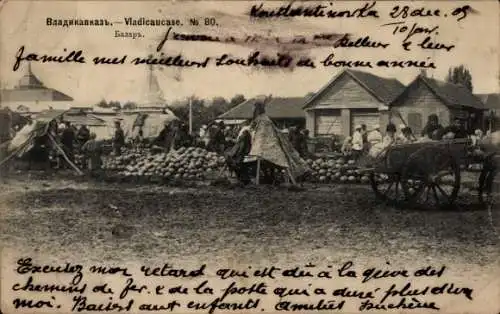 Владикавказъ.—Vladicaucase. № 80.
Базаръ.
Konstantinovka 28 dec. 05
10 janv.
J'envoie à Monsieur Keller et leur
famille mes meilleurs souhaits de bonne année
Excusez mon retard qui est dû à la grève des
chemins de fer & de la poste qui a duré plus d'un
mois. Baisers aux enfants. Amitiés